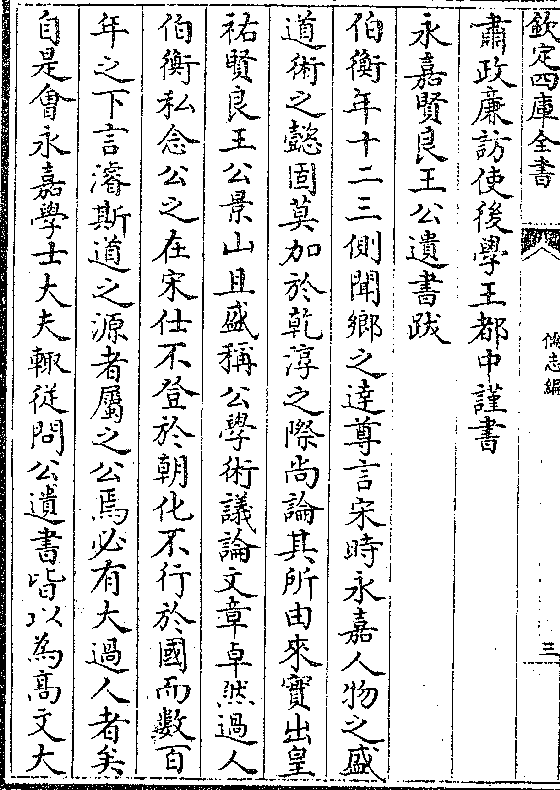 欽定四庫全書
儒志編
三
肅政廉訪使後學王都中謹書
永嘉賢良王公遺書跋
伯衡年十二三側聞鄉之達尊言宋時永嘉人物之盛
道術之懿固莫加於乾淳之際尚論其所由來實出皇
祐賢良王公景山且盛稱公學術議論文章卓然過人
伯衡私念公之在宋仕不登於朝化不行於國而數百
年之下言濬斯道之源者屬之公焉必有大過人者矣
自是會永嘉學士大夫輙従問公遺書皆以為髙文大